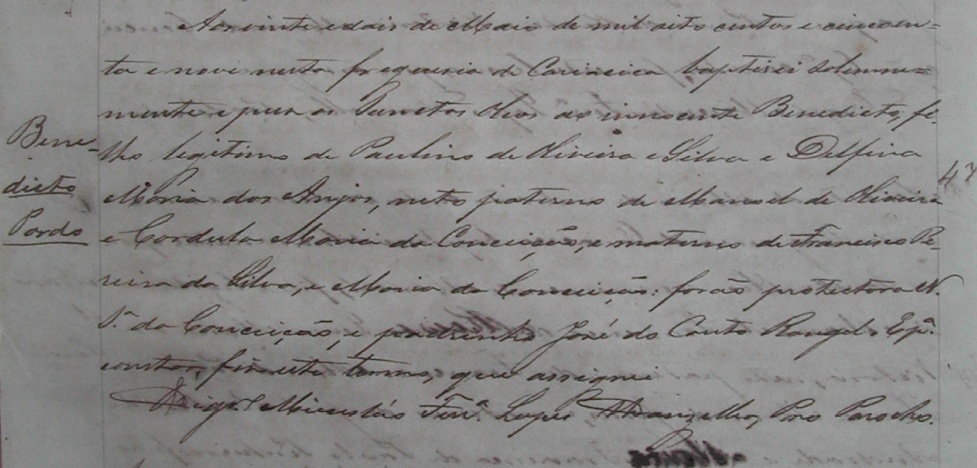 Aos vinte e dois de Maio de mil oito centos e cincoen=
ta e nove nesta freguesia de Cariacica baptisei solemne=
mente e puz os Sanctos Oleos ao innocente Benedicto, fi-
Bene-
lho legitimo de Paulino de Oliveira e Silva e Delfina
dicto
Maria dos Anjos, neto paterno de Manoel de Oliveira
47
Pardo
e Cordula Maria da Conceição, e materno de Francisco Pe-
reira da Silva, e Maria da Conceição: forão protectora N.
Sª. da Conceição, e padrinho José do Couto Rangel. E pª.
constar, fiz este termo, que assignei.
Lopes Pro Parocho.